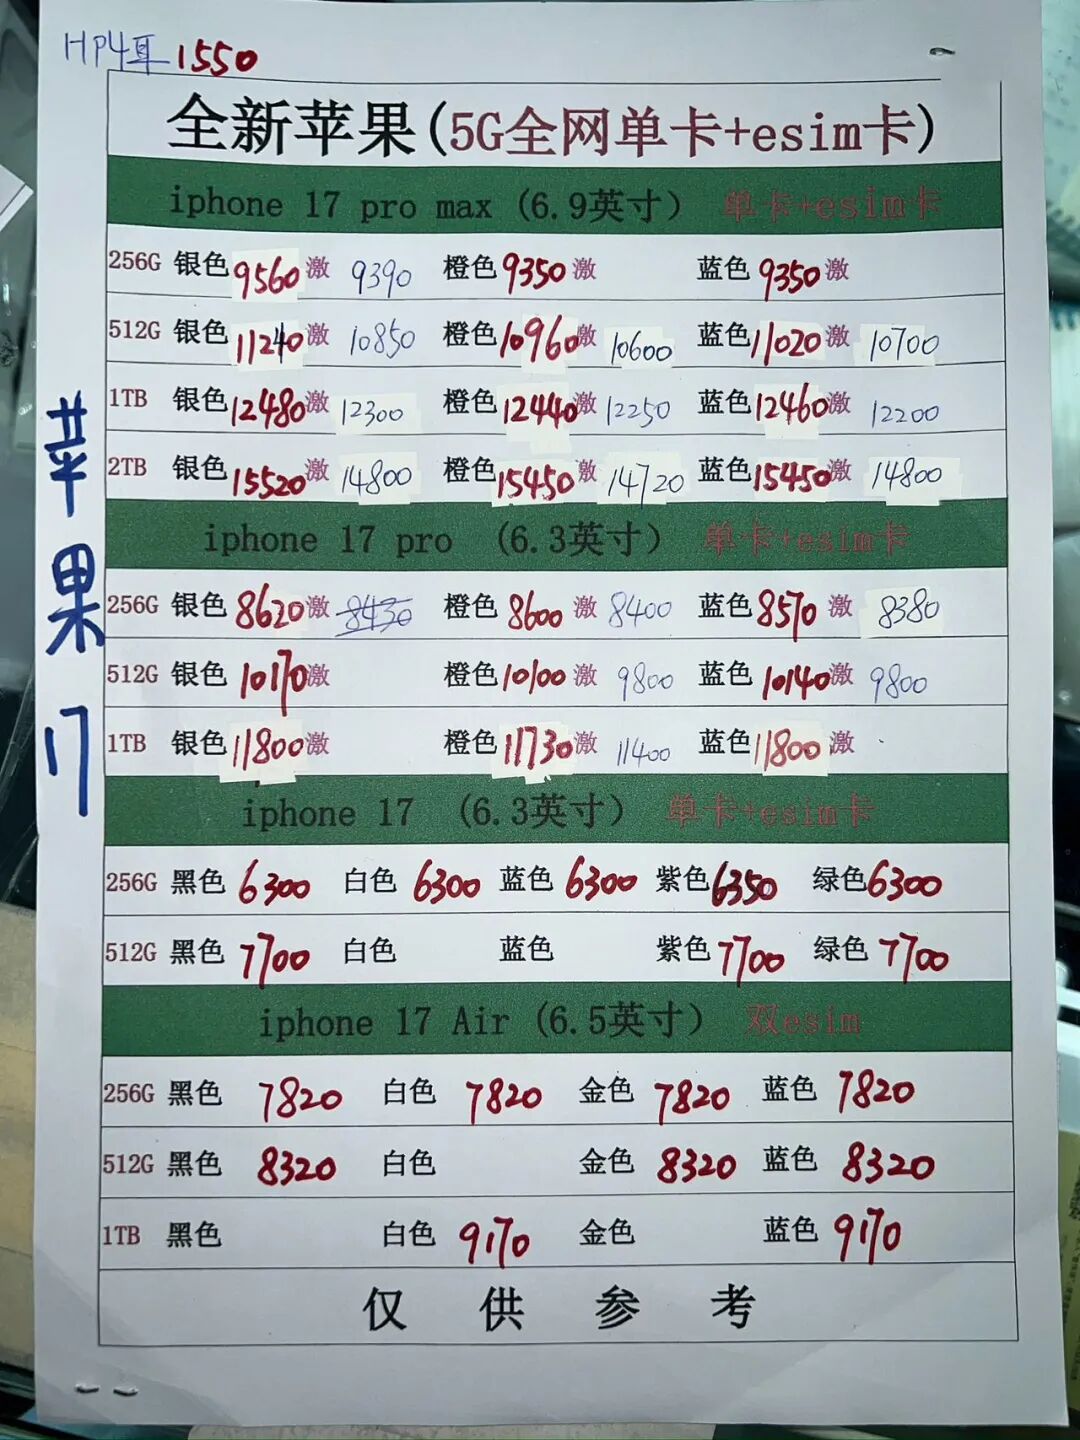 HP4耳 1550
全新苹果(5G全网单卡+esim卡)
iphone 17 pro max (6.9英寸) 单卡+esim卡
256G 银色 9560 激 9390 橙色 9350 激 蓝色 9350 激
512G 银色 11240 激 10850 橙色 10960 激 10600 蓝色 11020 激 10700
1TB 银色 12480 激 12300 橙色 12440 激 12250 蓝色 12460 激 12200
2TB 银色 15520 激 14800 橙色 15450 激 14720 蓝色 15450 激 14800
iphone 17 pro (6.3英寸) 单卡+esim卡
256G 银色 8620 激 8430 橙色 8600 激 8400 蓝色 8570 激 8380
512G 银色 10170 激 橙色 10100 激 9800 蓝色 10140 激 9800
1TB 银色 11800 激 橙色 11730 激 11400 蓝色 11800 激
iphone 17 (6.3英寸) 单卡+esim卡
256G 黑色 6300 白色 6300 蓝色 6300 紫色 6350 绿色 6300
512G 黑色 7700 白色 蓝色 紫色 7700 绿色 7700
iphone 17 Air (6.5英寸) 双esim
256G 黑色 7820 白色 7820 金色 7820 蓝色 7820
512G 黑色 8320 白色 金色 8320 蓝色 8320
1TB 黑色 白色 9170 金色 蓝色 9170
仅供参考
苹果17